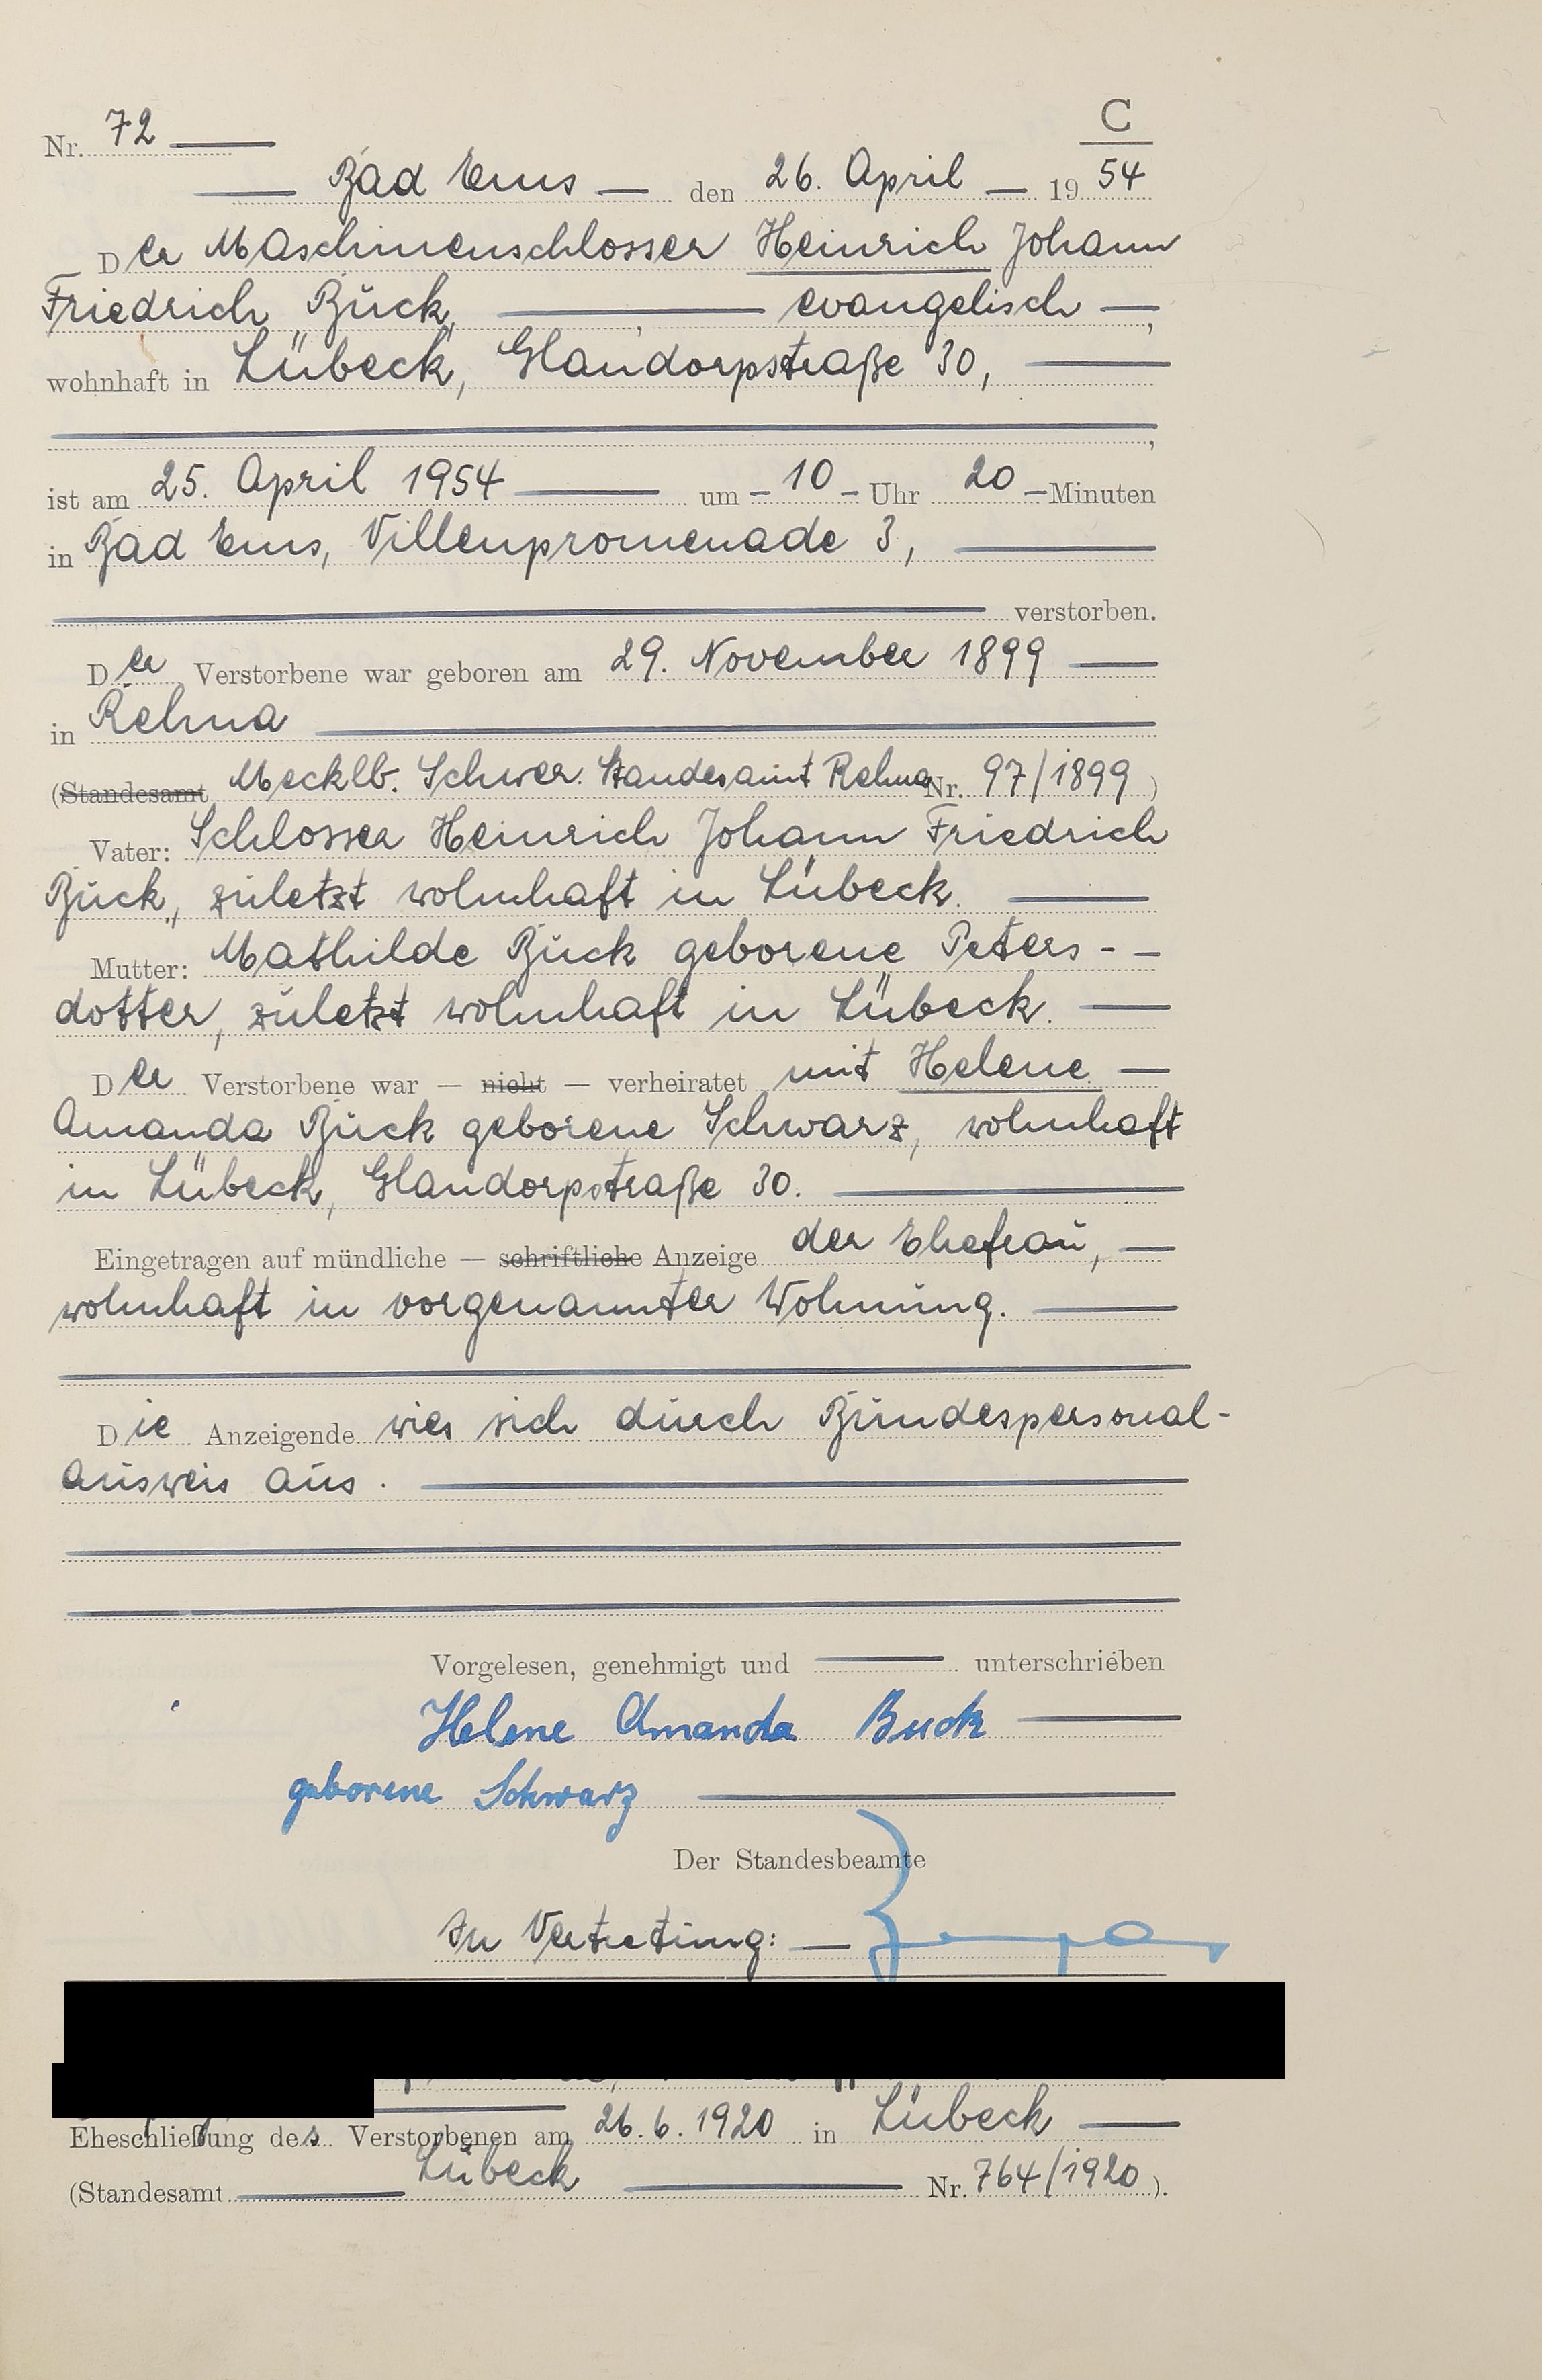 C
Nr. 72
Bad Ems den 26. April 19 54
Der Maschinenschlosser Heinrich Johann
Friedrich Buck, evangelisch,
wohnhaft in Lübeck, Glandorpstraße 30,
ist am 25. April 1954 um 10 Uhr 20 Minuten
in Bad Ems, Villenpromenade 3,
verstorben.
Der Verstorbene war geboren am 29. November 1899
in Rehna
(Standesamt Mecklb. Schwer. Standesamt Rehna Nr. 97/1899)
Vater: Schlosser Heinrich Johann Friedrich
Buck, zuletzt wohnhaft in Lübeck.
Mutter: Mathilde Buck geborene Peters-
dotter, zuletzt wohnhaft in Lübeck.
Der Verstorbene war — nicht — verheiratet mit Helene
Amanda Buck geborene Schwarz, wohnhaft
in Lübeck, Glandorpstraße 30.
Eingetragen auf mündliche — schriftliche Anzeige der Ehefrau,
wohnhaft in vorgenannter Wohnung.
Die Anzeigende wies sich durch Bundespersonal-
ausweis aus.
Vorgelesen, genehmigt und unterschrieben
Helene Amanda Buck
geborene Schwarz
Der Standesbeamte
In Vertretung:
Eheschließung des Verstorbenen am 26.6.1920 in Lübeck
(Standesamt Lübeck Nr. 764/1920).